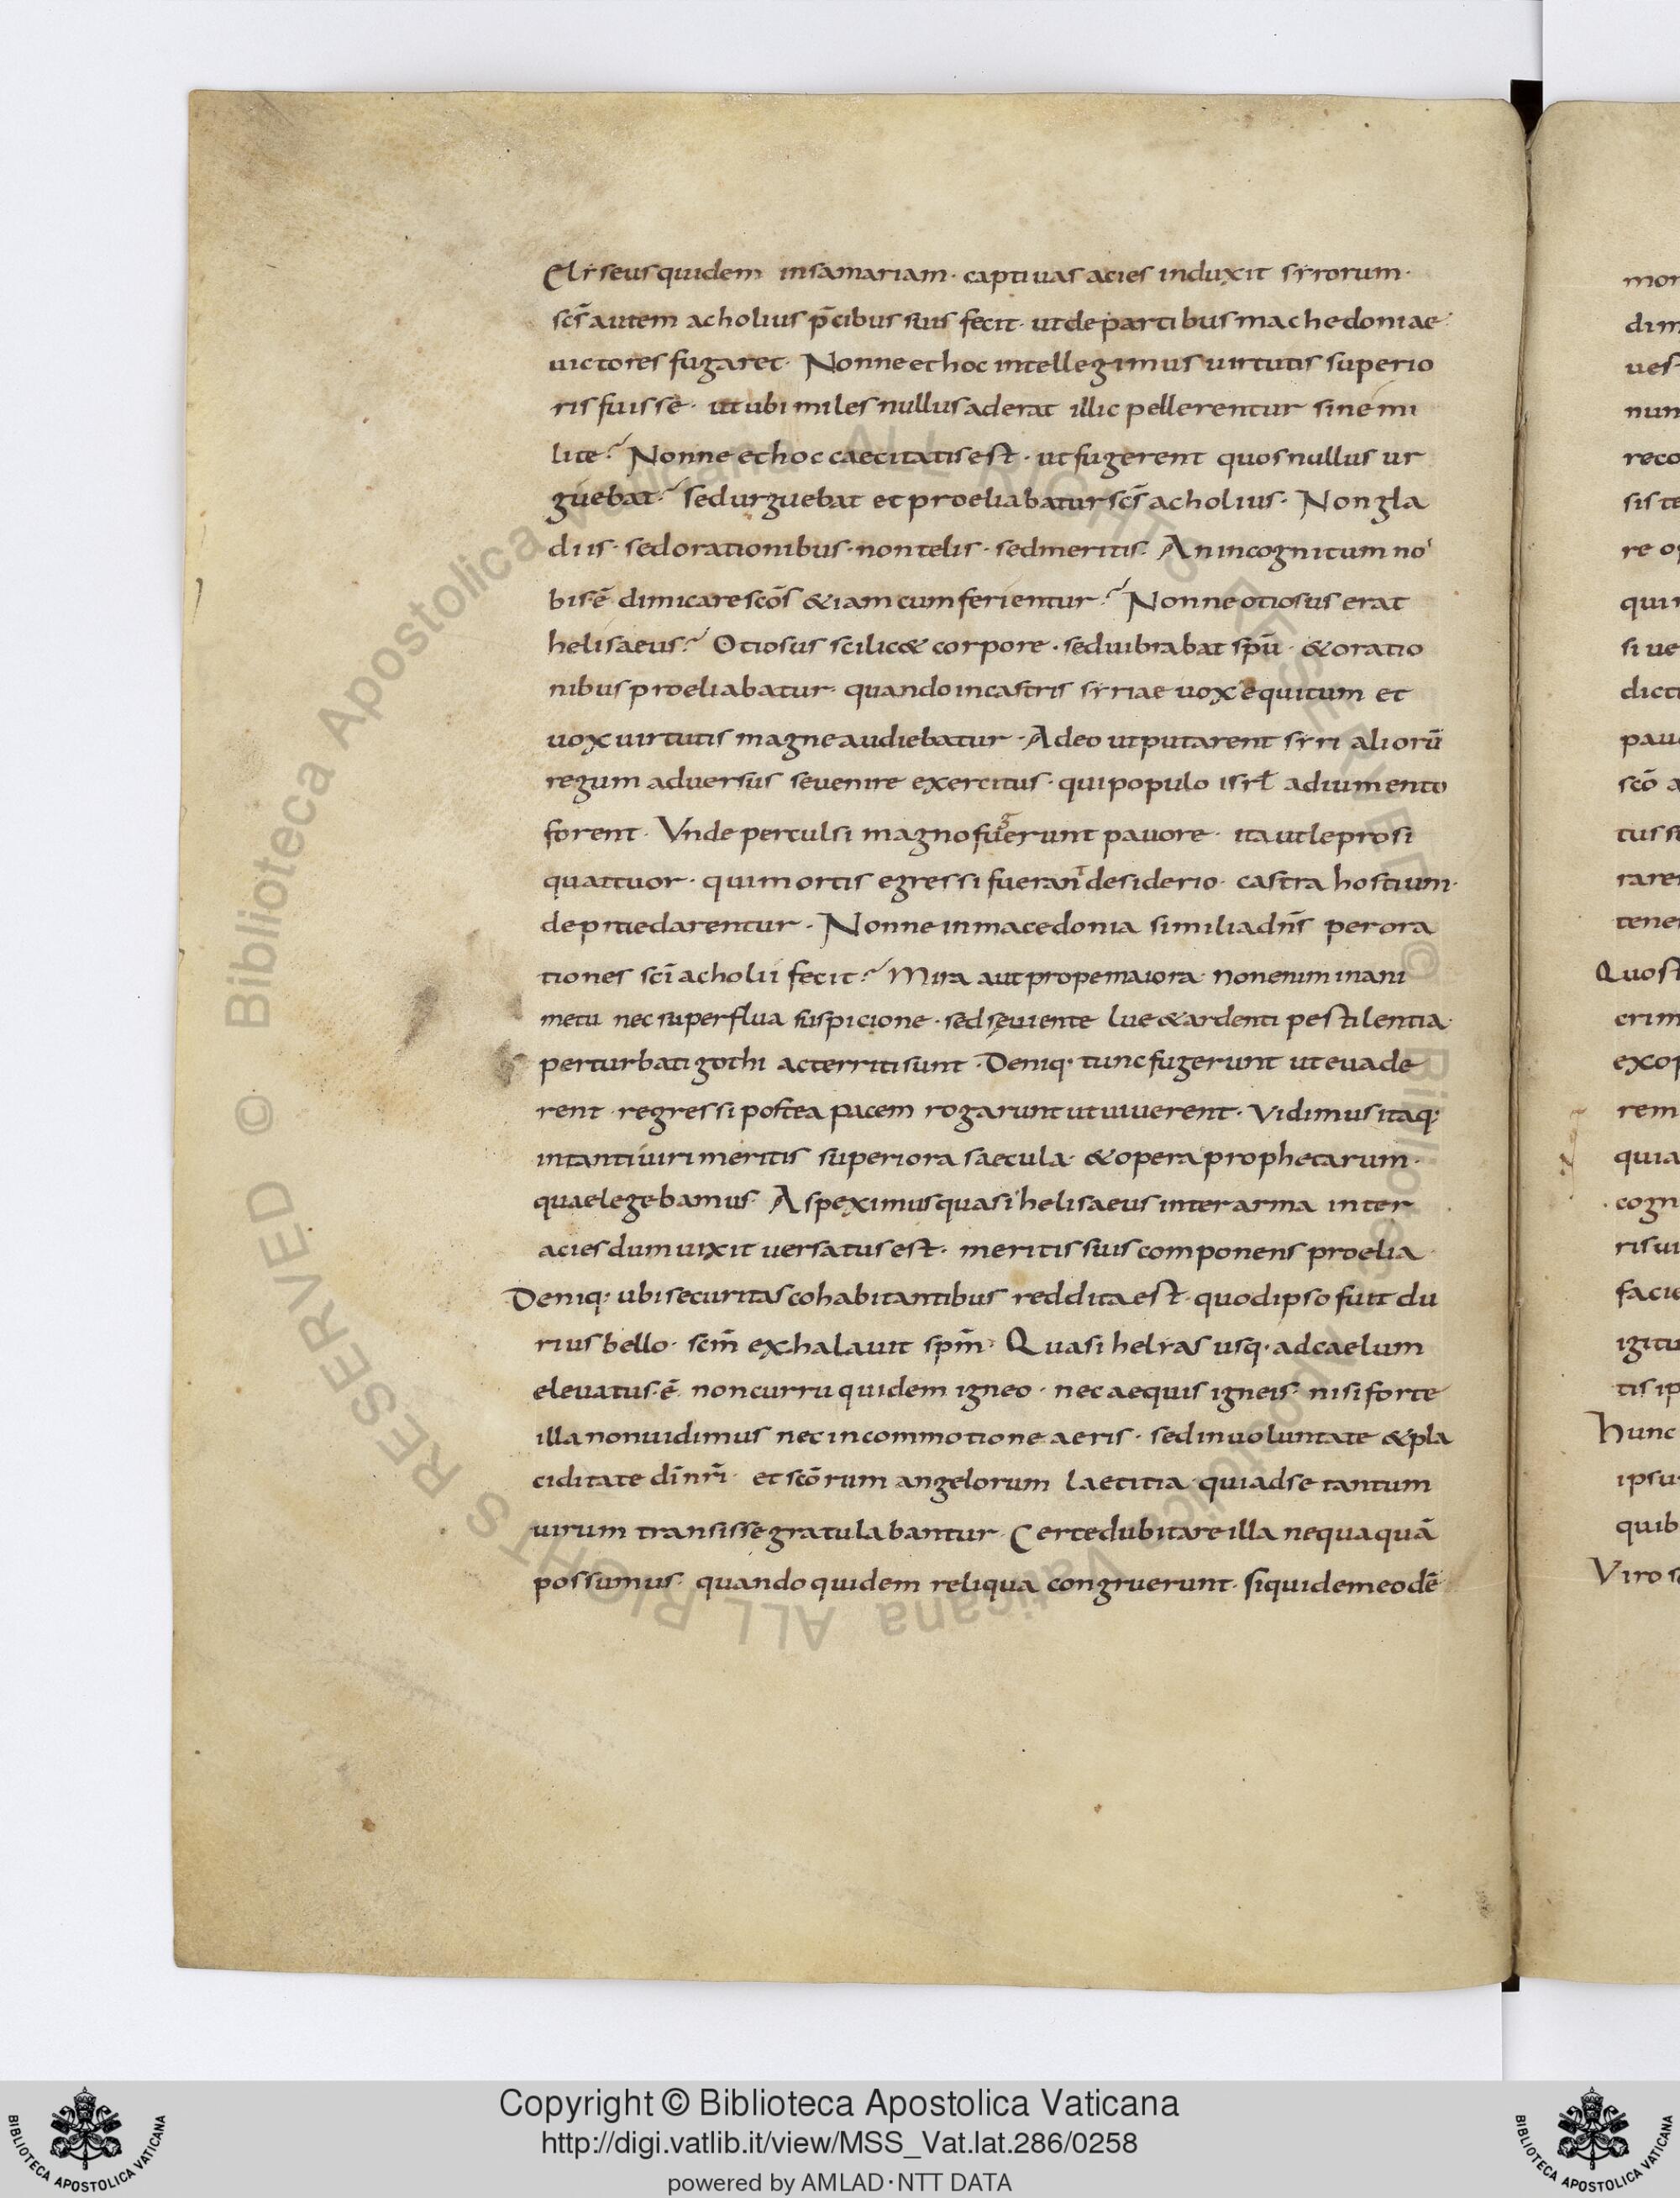 Elẏseus quidem in samariam · captiuas acies induxit sẏrorum ·
scs̄ autem acholius p̄cibus suis fecit · ut de partibus machedoniae
uictores fugaret · Nonne et hoc intellegimus uirtutis superio
ris fuisse · ut ubi miles nullus aderat illic pellerentur sine mi
lite? Nonne et hoc caecitatis est · ut fugerent quos nullus ur
guebat? sed urguebat et proeliabatur scs̄ acholius · Non gla
diis · sed orationibus · non telis · sed meritis · An incognitum no
bis ē dimicare scōs & iam cum ferientur? Nonne otiosus erat
helisaeus? Otiosus scilic& corpore · sed uibrabat spū · & oratio
nibus proeliabatur · quando in castris sẏriae uox equitum et
uox uirtutis magne audiebatur · Adeo ut putarent sẏri aliorū
regum aduersus se uenire exercitus · qui populo isrł adiumento
forent · Vnde perculsi magno fuerunt pauore · ita ut leprosi
quattuor · qui mortis egressi fuerant desiderio · castra hostium ·
depraedarentur · Nonne in macedonia similia dn̄s per ora
tiones scī acholii fecit? Mira aut prope maiora · non enim inani
metu nec superflua suspicione · sed sęuiente lue & ardenti pestilentia ·
perturbati gothi ac territi sunt · Deniq· tunc fugerunt ut euade
rent · regressi postea pacem rogarunt ut uiuerent · Vidimus itaq;
in tanti uiri meritis superiora saecula · & opera prophetarum ·
quae legebamus · Aspeximus quasi helisaeus inter arma inter
acies dum uixit uersatus est · meritis suis componens proelia
Deniq· ubi securitas cohabitantibus reddita est · quod ipso fuit du
rius bello · scm̄ exhalauit spm̄ · Quasi helẏas usq· ad caelum
eleuatus ē · non curru quidem igneo · nec aequis igneis · nisi forte
illa non uidimus nec in commotione aeris · sed in uoluntate & pla
ciditate dī nr̄i · et scōrum angelorum laetitia · qui ad se tantum
uirum transisse gratulabantur · Certe dubitare illa nequaquā
possumus · quando quidem reliqua congruerunt · siquidem eodē
mor
dim
ues
nun
reco
sis te
re o
qui
si ue
dict
pau
scō a
tus s
rarer
tene
Quos
crim
excop
rem
quia
cogn
ris ui
facie
igitu
tis ip
hunc
ipsu
quib
Viro s
© Biblioteca Apostolica Vaticana ALL RIGHTS RESERVED
© Biblioteca Apostolica Vaticana ALL RIGHTS RESERVED
Copyright © Biblioteca Apostolica Vaticana
http://digi.vatlib.it/view/MSS_Vat.lat.286/0258
powered by AMLAD·NTT DATA
BIBLIOTECA APOSTOLICA VATICANA
BIBLIOTECA APOSTOLICA VATICANA